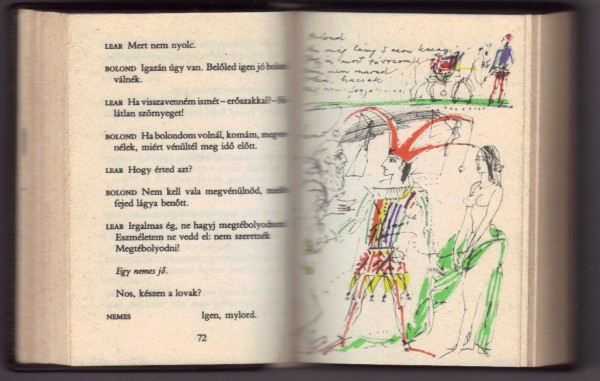 LEAR Mert nem nyolc.
BOLOND Igazán úgy van. Belőled igen jó
válnék.
LEAR Ha visszavenném ismét – erőszakkal? –
látlan szörnyeget!
BOLOND Ha bolondom volnál, komám,
nélek, miért vénültél meg idő előtt.
LEAR Hogy érted azt?
BOLOND Nem kell vala megvénülnöd,
fejed lágya benőtt.
LEAR Irgalmas ég, ne hagyj megtébolyodnom
Eszméletem ne vedd el: nem szeretnék
Megtébolyodni!
Egy nemes jő.
Nos, készen a lovak?
NEMES Igen, mylord.
72
Bolond